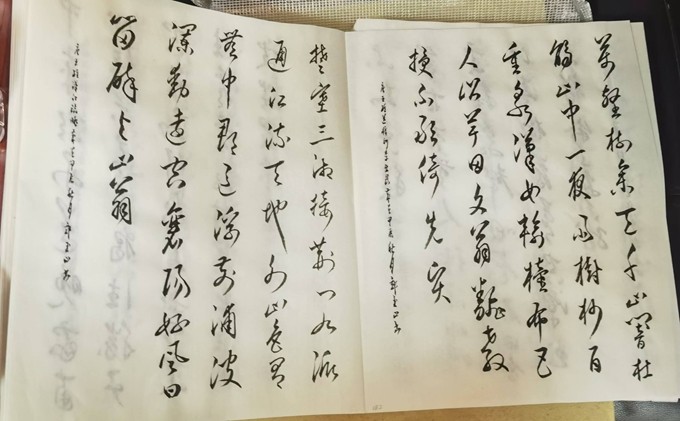 萬壑樹參天千山響杜
鵑山中一夜雨樹杪百
重泉漢女輸橦布巴
人訟芋田文翁翻教
授不敢倚先賢
王維送梓州李使君
楚塞三湘接荊門九派
通江流天地外山色有
無中郡邑浮前浦波
瀾動遠空襄陽好風日
留醉與山翁
王維詩漢江臨眺